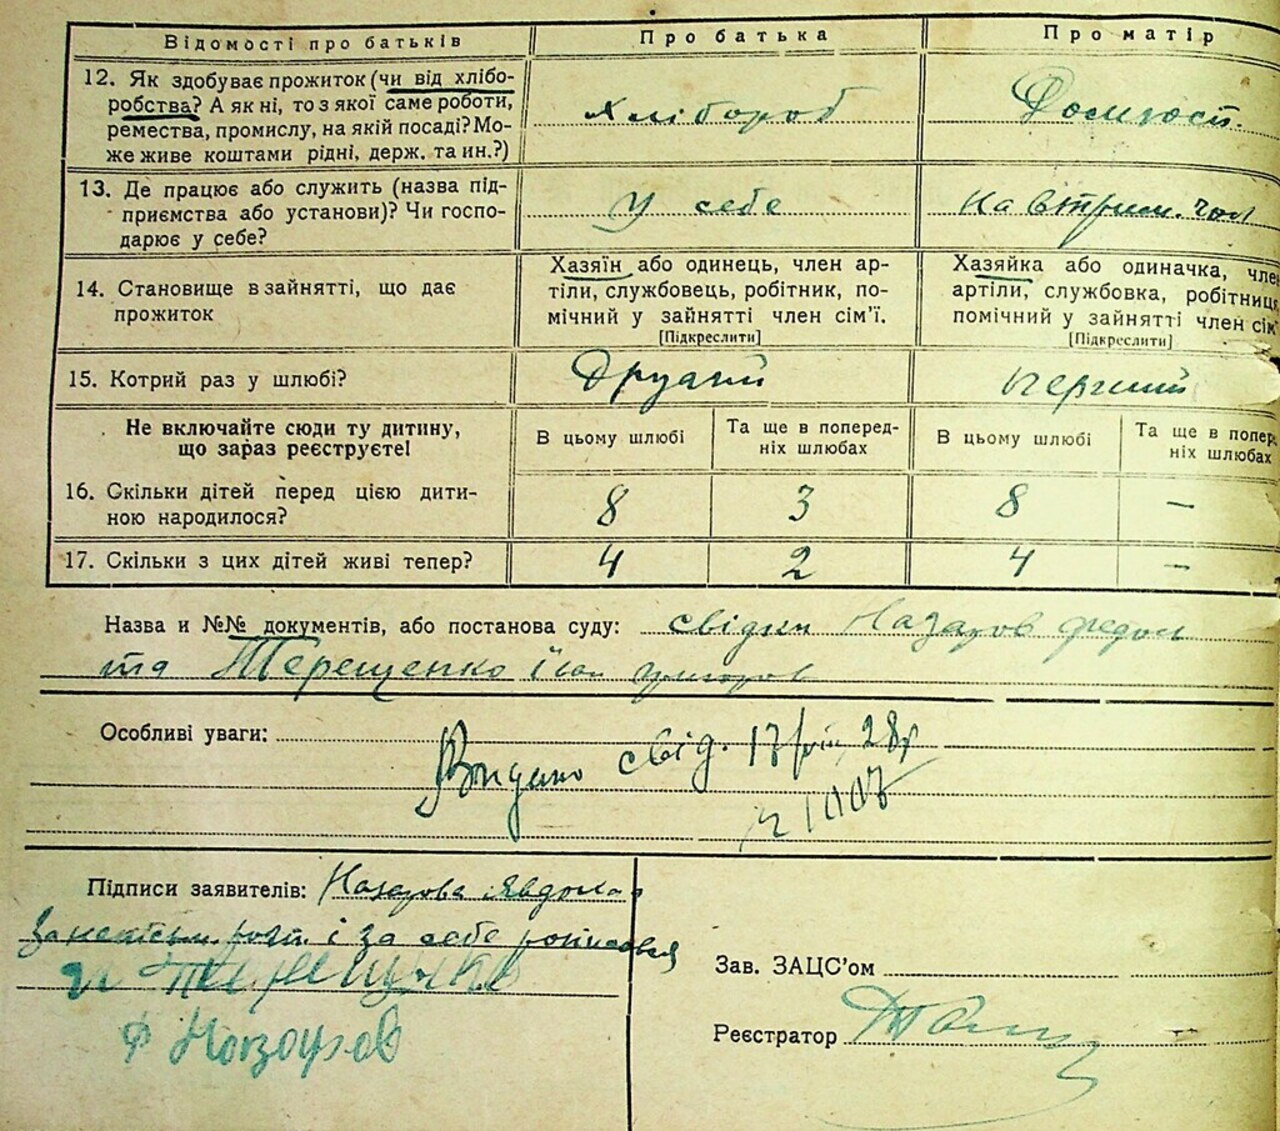 Відомості про батьків
Про батька
Про матір
12. Як здобуває прожиток (чи від хлібо-
робства? А як ні, то з якої саме роботи,
ремества, промислу, на якій посаді? Мо-
же живе коштами рідні, держ. та ин.?)
Хлібороб
Домгосп.
13. Де працює або служить (назва під-
приємства або установи)? Чи госпо-
дарює у себе?
У себе
на втрим. чол
14. Становище в зайнятті, що дає
прожиток
Хазяїн або одинець, член ар-
тіли, службовець, робітник, по-
мічний у зайнятті член сім’ї.
[Підкреслити]
Хазяйка або одиначка, член
артіли, службовка, робітниця
помічний у зайнятті член сім’
[Підкреслити]
15. Котрий раз у шлюбі?
Другий
перший
Не включайте сюди ту дитину,
що зараз реєструєте!
В цьому шлюбі
Та ще в поперед-
ніх шлюбах
В цьому шлюбі
Та ще в попер
ніх шлюбах
16. Скільки дітей перед цією дити-
ною народилося?
8 3 8 —
17. Скільки з цих дітей живі тепер?
4 2 4 —
Назва и №№ документів, або постанова суду: свідки Назаров Федот
та Терещенко Іван
Особливі уваги:
Видано свід. 17 28р
1007
Підписи заявителів: Назарова Явдокия
за і за себе розписався
Терещенко
Ф Назаров
Зав. ЗАЦС’ом
Реєстратор